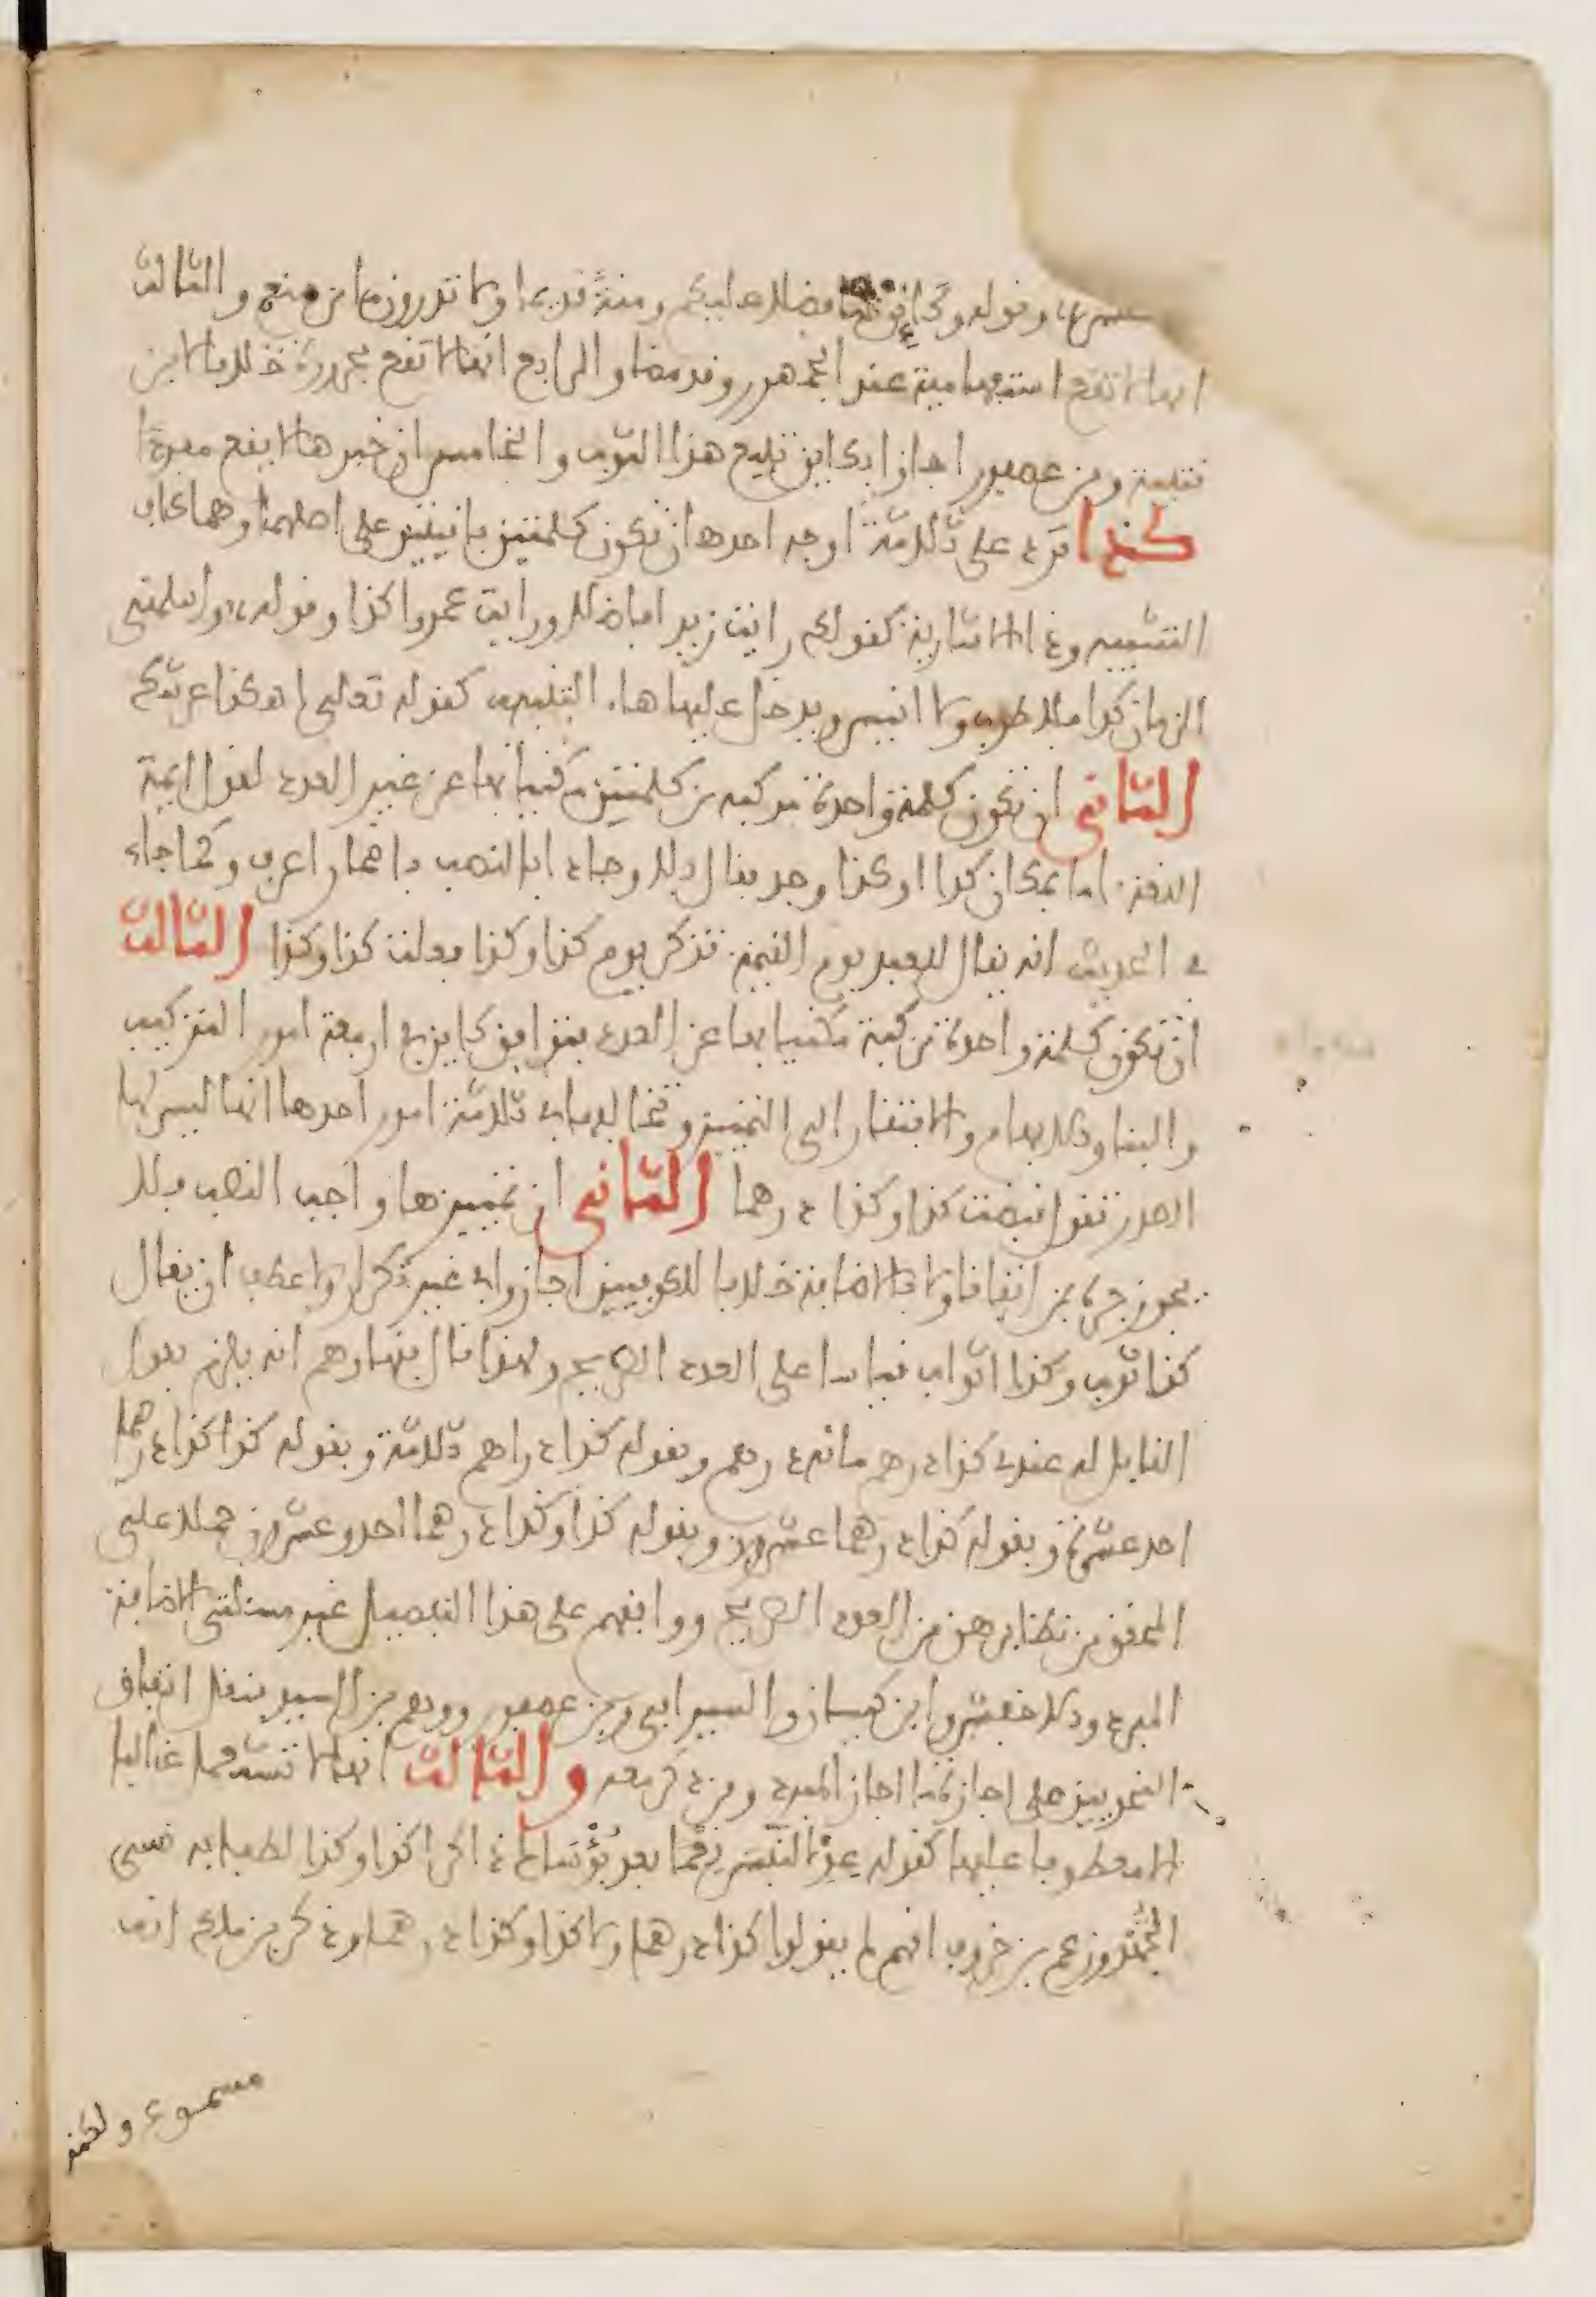 وقوله وكائن لنا فضلا عليكم ومنة قديما ولا تدرون ما من منعم والثالث
انها لا تقع استفهامية عند الجمهور وقد مضا والرابع انها لا تقع مجرورة خلافا لابن
قتيبة وبن عصفور اجازا بكاين تبيع هذا الثوب والخامس ان خبرها لا يقع مفردا
كذا ترد على ثلاثة اوجه احدها ان تكون كلمتين باقيتين على اصلهما وهما كاف
التشبيه وذا الاشارية كقولك رايت زيدا فاضلا ورايت عمروا كذا وقوله، واسلمني
الزمان كذا فلا طرب ولا انيس ويدخل عليها هاء التنبيه كقوله تعالى اهكذا عرشك
الثاني ان تكون كلمة واحدة مركبة من كلمتين مكنيا بها عن غير العدد كقول ايمة
اللغة اما بمكان كذا اوكذا وجد بقال بلا وجاد ابالنصب باضمار اعرف وكما جاء
في الحديث انه يقال للعبد يوم القيمة تذكر يوم كذا وكذا فعلت كذا وكذا الثالث
ان تكون كلمة واحدة مركبة مكنيا بها عن العدد فتوافق كاين في اربعة امور التركيب
والبنا والابهام والافتقار الى التمييز وتخالفها في ثلاثة امور احدها انها ليس لها
الصدر تقول قبضت كذا وكذا درهما الثاني ان تمييزها واجب النصب فلا
يجوز جره بمن اتفاقا ولا بالاضافة خلافا للكوفيين اجازوا في غير تكرار ولا عطف ان يقال
كذا ثوب وكذا اثواب قياسا على العدد الصريح ولهذا قال فقهاؤهم انه يلزم بقول
القايل له عندي كذا درهم مائة درهم وبقوله كذا دراهم ثلاثة وبقوله كذا كذا درهما
احد عشر وبقوله كذا درهما عشرون وبقوله كذا وكذا درهما احد وعشرون حملا على
المحقق من نظايرهن من العدد الصريح ووافقهم على هذا التفصيل غير مسئلتي الاضافة
المبرد والاخفش وابن كيسان والسيرافي وبن عصفور ووهم بن السيد بنقل اتفاق
النحويين على اجازة ما اجاز المبرد ومن ذكر معه والثالث انها لا تستعمل غالبا
الا معطوفا عليها كقوله عد النفس نعما بعد بؤساك ذاكرا كذا وكذا لطفا به نسي
الجهد وزعم بن خروف انهم لم يقولوا كذا درهما ولا كذا وكذا درهما وذكر بن ملك انه
مسموع ولكنه